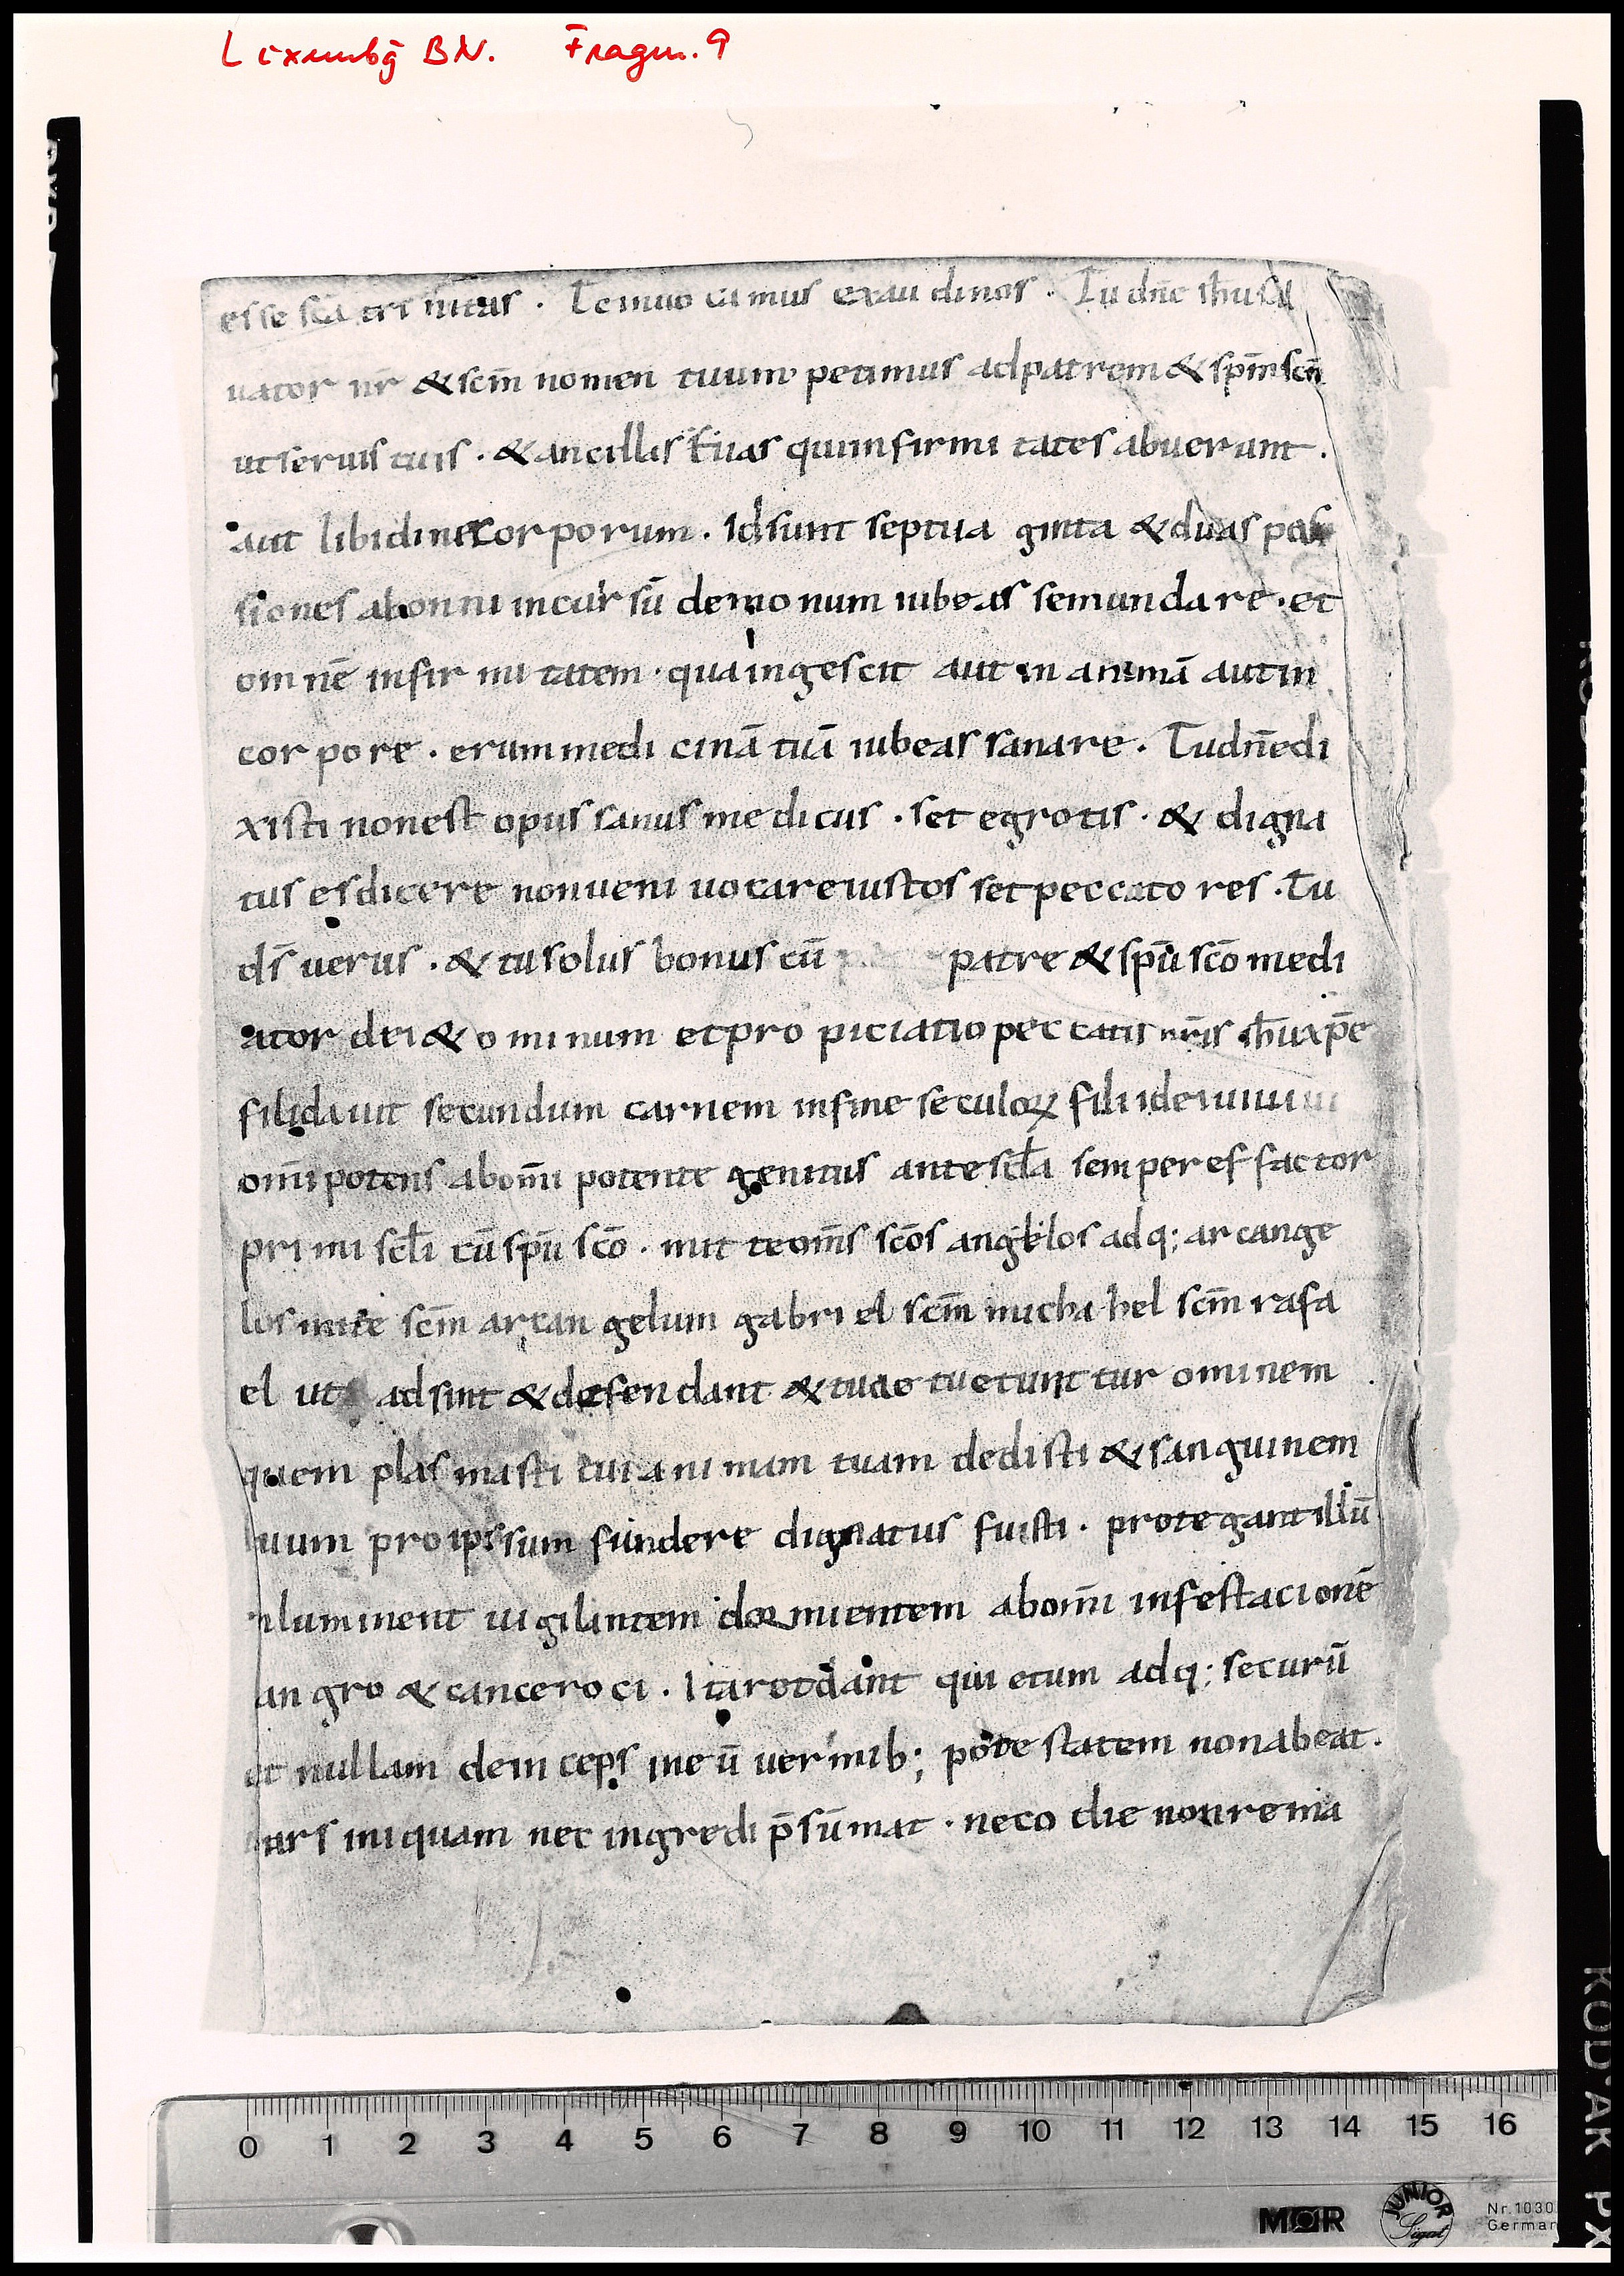 Luxembg BN. Fragm. 9
esse scā tri nitas . Te inuo camus exau dinos . Tu dn̄e ih̄u sal
uator nr̄ & scm̄ nomen tuum petimus ad patrem & sp̄m scm̄
ut seruis tuis . & ancillis tuas qui infirmi tates abuerunt .
aut libidines cor porum . Id sunt septua ginta & duas pas
siones ab omni incur sū demo num iubeas se mundare . et
om nē infir mi tatem . qua ingescit aut in animā aut in
cor pore . erum medi cinā tuā iubeas sanare . Tu dn̄e di
xisti non est opus sanus me dicus . set egrotis . & digna
tus es dicere non ueni uocare iustos set peccato res . Tu
ds̄ uerus . & tu solus bonus cū patre & sp̄u scō medi
ator dei & o minum et pro piciatio peccatis nr̄is ih̄u xp̄e
fili dauit secundum carnem in fine seculoꝝ fili dei uiui
om̄i potens ab om̄i potente genitus ante scl̄a semper es factor
pri mi scl̄i cū sp̄u scō . mit te om̄s scōs angelos adq; arcange
los mitte scm̄ arcan gelum gabri el scm̄ micha hel scm̄ rafa
el ut ad sint & defen dant & tuae tuetunt tur ominem
quem plas masti cui ani mam tuam dedisti & sanguinem
tuum pro ipssum fundere dignatus fuisti . prote gant illū
iluminent uigilintem dor mientem ab om̄i infestacionē
an gro & cancero ci . Ita reddant qui etum adq; securū
et nullam dein ceps ine ū uer mib; pote statem non abeat .
ars iniquam nec ingredi p̄ sūmat . nec o die non re mia
0 1 2 3 4 5 6 7 8 9 10 11 12 13 14 15 16
MOR JUNIOR Nr. 1030
German
KODAK PX